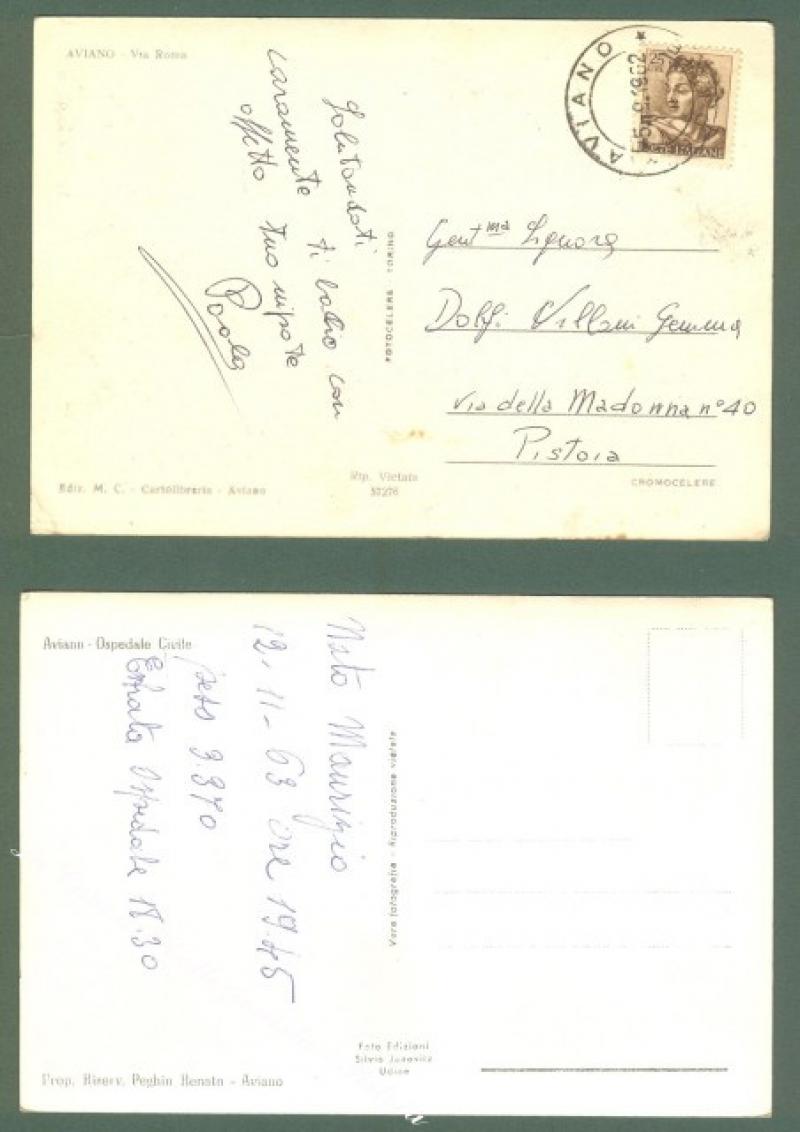 AVIANO - Via Roma
AVIANO
1962
25
POSTE ITALIANE
Salutandoti
caramente ti bacio con
affetto tuo nipote
Paola
FOTOCELERE TORINO
Gent.ma Signora
Dolfi Villani Gemma
via della Madonna n° 40
Pistoia
Ediz. M. C. - Cartolibraria - Aviano
Rip. Vietata
57276
CROMOCELERE
Aviano - Ospedale Civile
Nato Maurizio
12-11-63 ore 19.45
peso 3.370
Entrata Ospedale 18.30
Vera fotografia - Riproduzione vietata
Foto Edizioni
Silvio
Udine
Prop. Riserv. Peghin Renato - Aviano